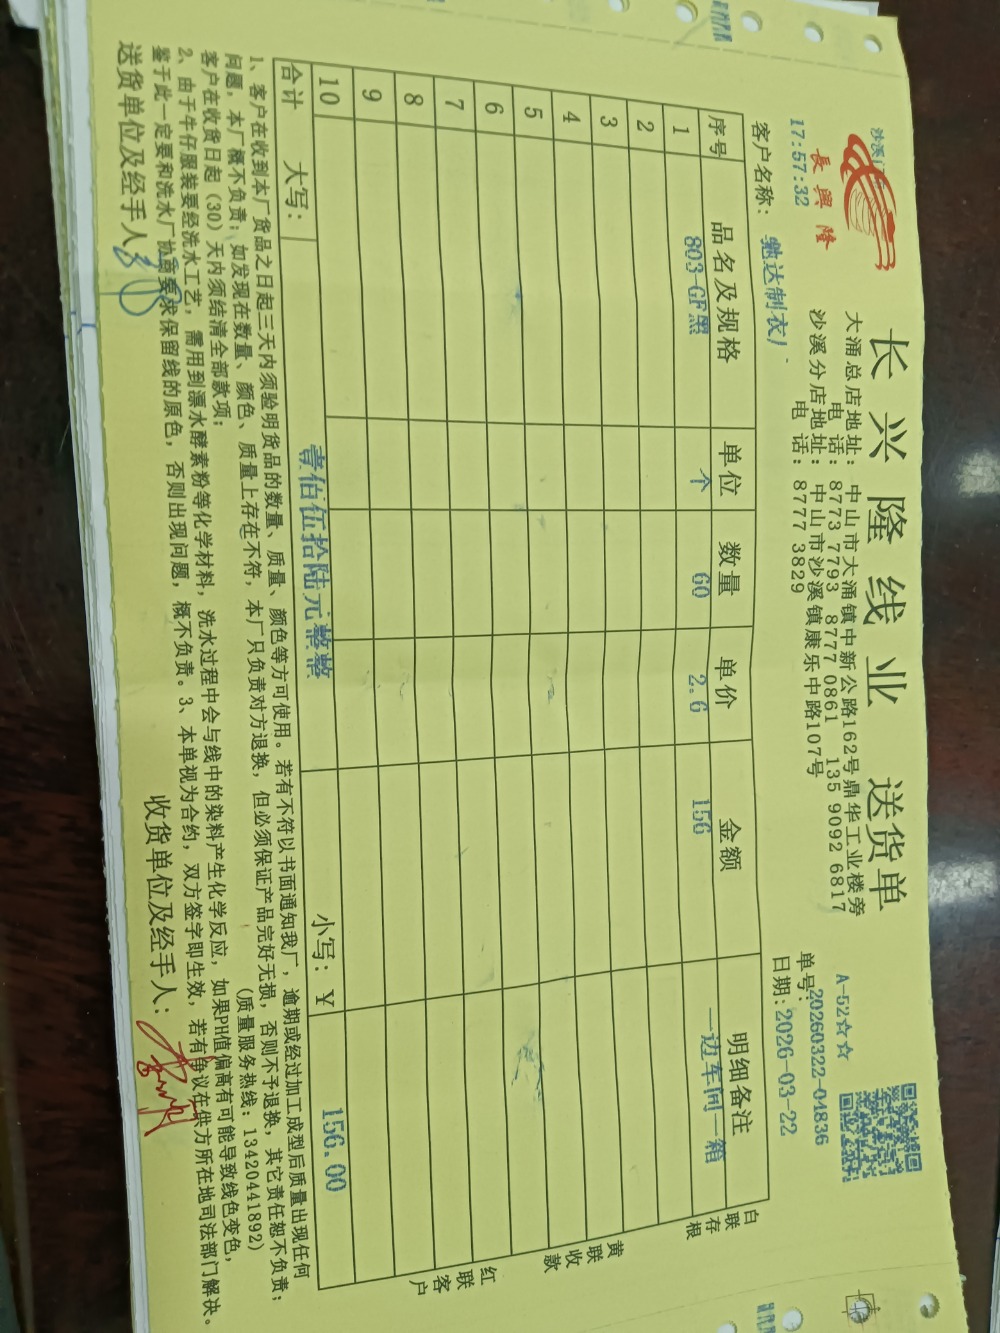 长兴隆线业 送货单
長興隆
沙溪
17:57:32
大涌总店地址：中山市大涌镇中新公路162号鼎华工业楼旁
电话：8773 7793 8777 0861 135 9092 6817
沙溪分店地址：中山市沙溪镇康乐中路107号
电话：8777 3829
A-52☆☆
单号：20260322-04836
日期：2026-03-22
客户名称：驰达制衣厂
序号 品名及规格 单位 数量 单价 金额 明细备注
1 803-GF黑 个 60 2.6 156 一边车间一箱
2
3
4
5
6
7
8
9
10
合计 大写：壹佰伍拾陆元整整 小写：￥ 156.00
白联存根
黄联收款
红联客户
1、客户在收到本厂货品之日起三天内须验明货品的数量、质量、颜色等方可使用。若有不符以书面通知我厂，逾期或经过加工成型后质量出现任何
问题，本厂概不负责；如发现在数量、颜色、质量上存在不符，本厂只负责对方退换，但必须保证产品完好无损，否则不予退换，其它责任恕不负责；
客户在收货日起（30）天内须结清全部款项；（质量服务热线：13420441892）
2、由于牛仔服装要经洗水工艺，需用到漂水酵素粉等化学材料，洗水过程中会与线中的染料产生化学反应，如果PH值偏高有可能导致线色变色，
鉴于此一定要和洗水厂协商要求保留线的原色，否则出现问题，概不负责。3、本单视为合约，双方签字即生效，若有争议在供方所在地司法部门解决。
送货单位及经手人： 收货单位及经手人：